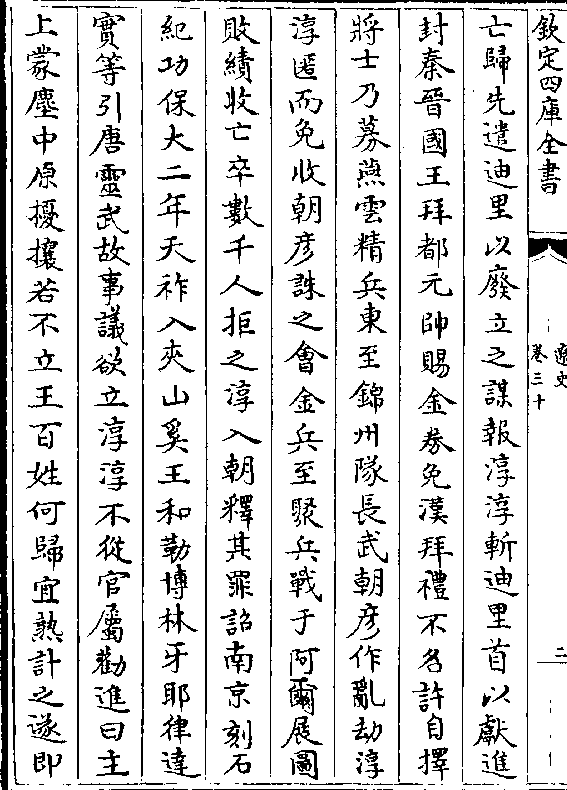 欽定四庫全書
遼史
卷三十
二
亡歸先遣迪里以廢立之謀報淳淳斬迪里首以獻進
封秦晉國王拜都元帥賜金券免漢拜禮不名許自擇
將士乃募燕雲精兵東至錦州隊長武朝彦作亂劫淳
淳匿而免收朝彦誅之會金兵至聚兵戰于阿爾展圖
敗績收亡卒數千人拒之淳入朝釋其罪詔南京刻石
紀功保大二年天祚入夾山奚王和勒博林牙耶律達
實等引唐靈武故事議欲立淳淳不從官屬勸進曰主
上蒙塵中原擾攘若不立王百姓何歸宜熟計之遂即